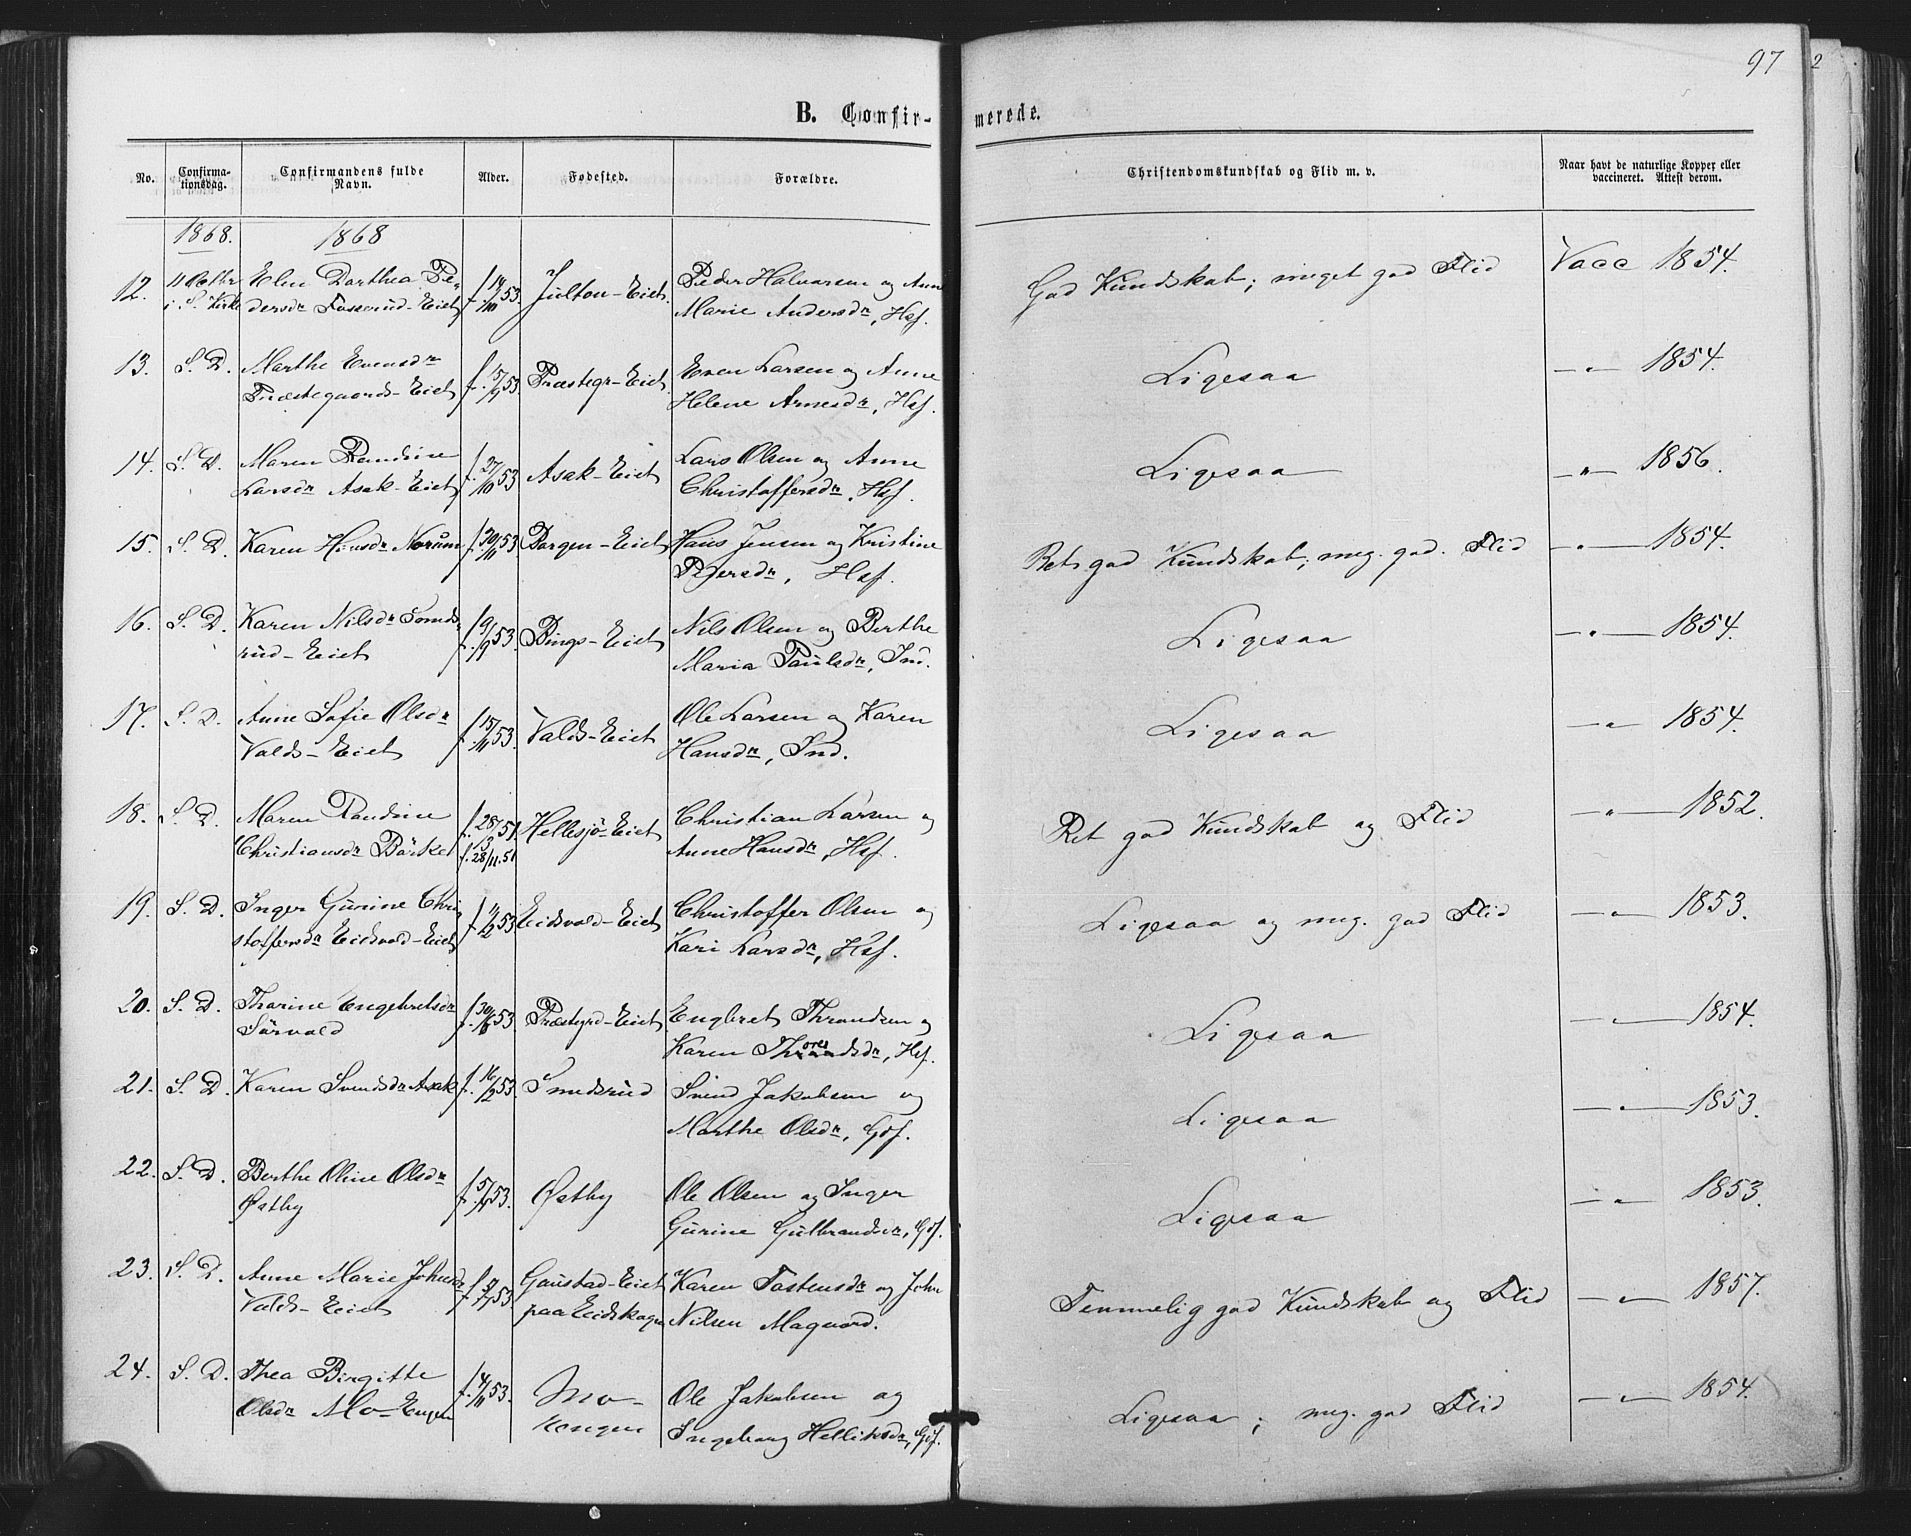 97
2
B. Confir-
merede.
No.
Confirma-
tionsdag.
Confirmandens fulde
Navn.
Alder.
Fødested.
Forældre.
Christendomskundskab og Flid m. v.
Naar havt de naturlige Kopper eller
vaccineret. Attest derom.
1868. 1868
12. 11 Octbr Elen Dorthea Pe- f. 14/10 53 Julton-Eiet. Peder Halvorsen og Anne God Kundskab; meget god Flid Vacc 1854.
i S. Kirke dersdr Fosserud-Eiet Marie Andersdr, Hsf.
13. S. D. Marthe Evensdr f. 15/9 53 Præstegr-Eiet Even Larsen og Anne Ligesaa —"— 1854.
Præstegaards-Eiet Helene Arnesdr, Hsf.
14. S. D. Maren Randine f. 27/10 53 Asak-Eiet Lars Olsen og Anne Ligesaa —"— 1856.
Larsdr Asak-Eiet Christoffersdr, Hsf.
15. S. D. Karen Hansdr Norum f. 30/11 53 Borgen-Eiet Hans Jensen og Kristine Ret god Kundskab; meg. god. Flid —"— 1854.
Pedersdr, Hsf.
16. S. D. Karen Nilsdr Tomds- f. 9/9 53 Bings-Eiet Nils Olsen og Berthe Ligesaa —"— 1854.
rud-Eiet Maria Paulsdr, Ind.
17. S. D. Anne Sofie Olsdr f. 15/11 53. Valds-Eiet Ole Larsen og Karen Ligesaa —"— 1854.
Valds-Eiet Hansdr, Ind.
18. S. D. Maren Randine f. 28/ 51 Hellesjø-Eiet Christian Larsen og Ret god Kundskab og Flid —"— 1852.
Christiansdr Börke f. 28/11. 51 Anne Hansdr, Hsf.
19. S. D. Inger Gurine Chri f. 11/2 53 Eidsvold-Eiet Christoffer Olsen og Ligesaa og meg. god Flid —"— 1853.
stoffersdr Eidsvold-Eiet Kari Larsdr, Hsf.
20. S. D. Thorine Engebretsdr f. 30/8 53 Præstegrd-Eiet Engbret Throndsen og Ligesaa —"— 1854.
Sörvald Karen Thoresdr, Hsf.
21. S. D. Karen Svendsdr Asak f. 16/2 53 Smedsrud Svend Jakobsen og Ligesaa —"— 1853.
Marthe Olsdr, Gdf.
22. S. D. Berthe Oline Olsdr f. 5/4 53. Østby Ole Olsen og Inger Ligesaa —"— 1853.
Østby Gurine Gulbrandsdr, Gdf.
23. S. D. Anne Marie Johnsdr 53 Gaustad-Eiet Karen Tostensdr og John Temmelig god Kundskab og Flid —"— 1857.
Valds-Eiet paa Eidskogen Nilsen Magnord.
24. S. D. Thea Birgitte f. 4/11 53. Mo- Ole Jakobsen og Ligesaa; meg. god Flid —"— 1854.
Olsdr Mo-Engen Engen Ingeborg Helliksdr, Gdf.